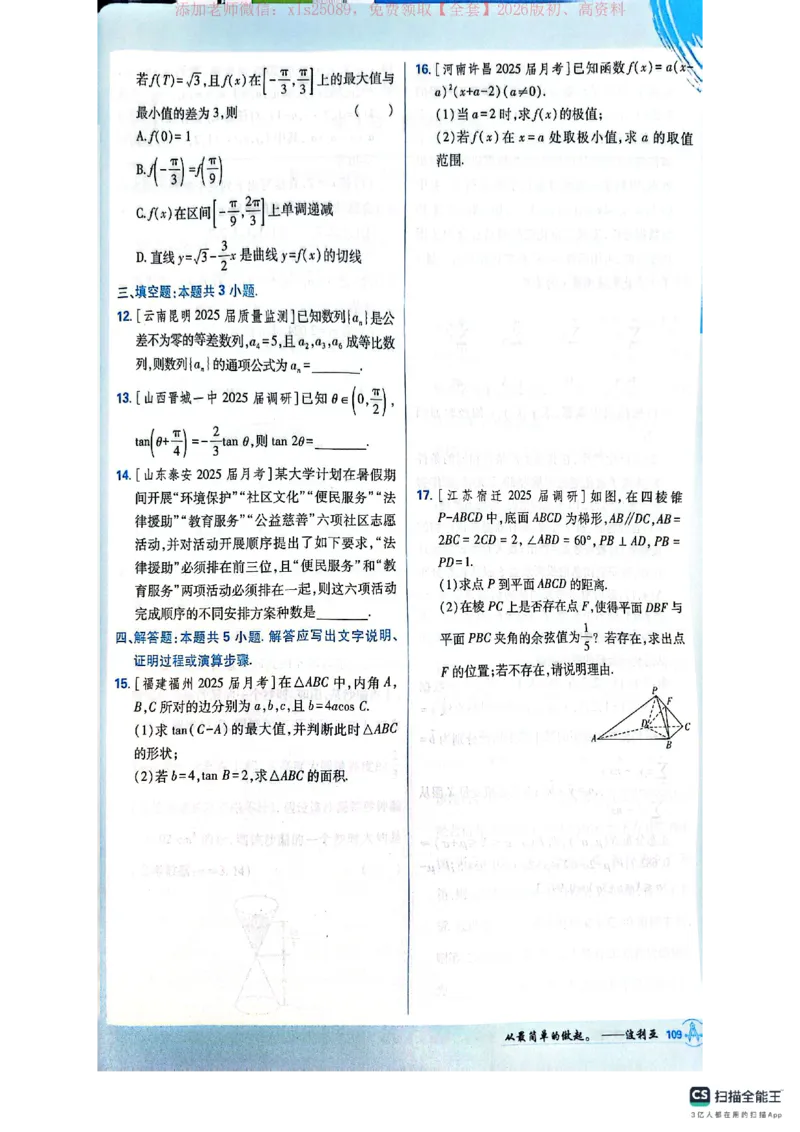 添加老师微信：xls25089，免费领取【全套】2026版初、高资料
若f(T)=√3,且f(x)在[-π/3,π/3]上的最大值与
最小值的差为3,则 ( )
A.f(0)=1
B.f(-π/3)=f(π/9)
C.f(x)在区间[-π/9,2π/3]上单调递减
D.直线y=√3-3/2x是曲线y=f(x)的切线
三、填空题:本题共3小题.
12.[云南昆明2025届质量监测]已知数列{aₙ}是公
差不为零的等差数列,a₄=5,且a₂,a₃,a₆成等比数
列,则数列{aₙ}的通项公式为aₙ=______.
13.[山西晋城一中2025届调研]已知θ∈(0,π/2),
tan(θ+π/4)=-2/3tan θ,则tan 2θ=______.
14.[山东泰安2025届月考]某大学计划在暑假期
间开展“环境保护”“社区文化”“便民服务”“法
律援助”“教育服务”“公益慈善”六项社区志愿
活动,并对活动开展顺序提出了如下要求,“法
律援助”必须排在前三位,且“便民服务”和“教
育服务”两项活动必须排在一起,则这六项活动
完成顺序的不同安排方案种数是______.
四、解答题:本题共5小题.解答应写出文字说明、
证明过程或演算步骤.
15.[福建福州2025届月考]在△ABC中,内角A,
B,C所对的边分别为a,b,c,且b=4acos C.
(1)求tan(C-A)的最大值,并判断此时△ABC
的形状;
(2)若b=4,tan B=2,求△ABC的面积.
16.[河南许昌2025届月考]已知函数f(x)=a(x-
a)²(x+a-2)(a≠0).
(1)当a=2时,求f(x)的极值;
(2)若f(x)在x=a处取极小值,求a的取值
范围.
17.[江苏宿迁2025届调研]如图,在四棱锥
P-ABCD中,底面ABCD为梯形,AB∥DC,AB=
2BC=2CD=2,∠ABD=60°,PB⊥AD,PB=
PD=1.
(1)求点P到平面ABCD的距离.
(2)在棱PC上是否存在点F,使得平面DBF与
平面PBC夹角的余弦值为1/5?若存在,求出点
F的位置;若不存在,请说明理由.
P
F
D
C
A
B
从最简单的做起。——波利亚 109
CS 扫描全能王
3亿人都在用的扫描App